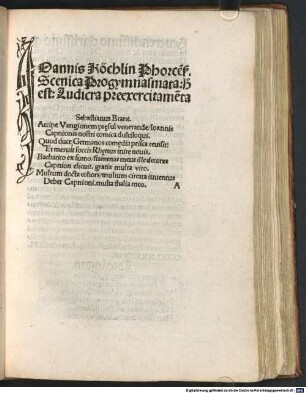 Ioannis Röchlin Phorceñ.
Scenica Progymnasmata: H̄
est: Ludicra preexercitamẽta
Sebastianus Brant.
Accipe Vangionem presul venerande/Ioannis
Capnionis nostri comica dulciloqui.
Quod duce Germanos comedia prisca reuisit:
Et meruit soccis Rhenus inire nouis.
Barbarico ex fumo
Capnion elicuit. gratis multa viro.
Multum docta cohors/multum cirrata iuuentus
Debet Capnioni. multa thalia meo. A